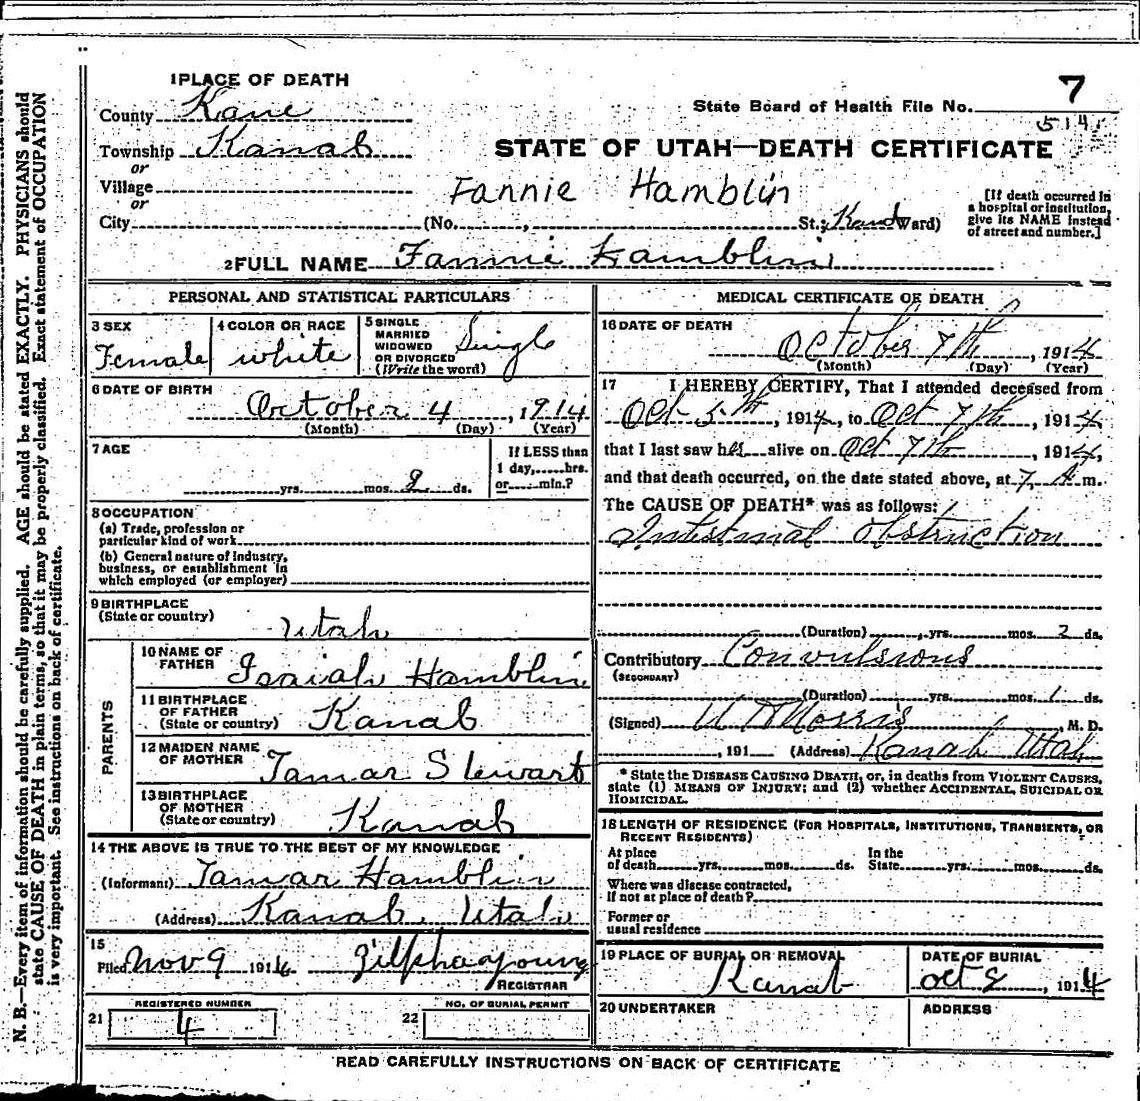 1 PLACE OF DEATH
7
County Kane
State Board of Health File No.
514
Township Kanab
STATE OF UTAH—DEATH CERTIFICATE
or
Village
Fannie Hamblin
or
City (No. , St.; Ward)
[If death occurred in
a hospital or institution,
give its NAME instead
of street and number.]
2 FULL NAME Fannie Hamblin
PERSONAL AND STATISTICAL PARTICULARS
3 SEX
Female
4 COLOR OR RACE
white
5 SINGLE
MARRIED
WIDOWED
OR DIVORCED
(Write the word)
Single
6 DATE OF BIRTH
October 4, 1914
(Month) (Day) (Year)
7 AGE
yrs. mos. ds.
If LESS than
1 day, hrs.
or min.?
8 OCCUPATION
(a) Trade, profession or
particular kind of work
(b) General nature of industry,
business, or establishment in
which employed (or employer)
9 BIRTHPLACE
(State or country)
Utah
PARENTS
10 NAME OF
FATHER
Isaiah Hamblin
11 BIRTHPLACE
OF FATHER
(State or country)
Kanab
12 MAIDEN NAME
OF MOTHER
Tamar Stewart
13 BIRTHPLACE
OF MOTHER
(State or country)
Kanab
14 THE ABOVE IS TRUE TO THE BEST OF MY KNOWLEDGE
(Informant) Tamar Hamblin
(Address) Kanab, Utah
15
Filed Nov 9 1914 Zilpha Young
REGISTRAR
REGISTERED NUMBER
21 4
NO. OF BURIAL PERMIT
22
MEDICAL CERTIFICATE OF DEATH
16 DATE OF DEATH
October 7th, 1914
(Month) (Day) (Year)
17 I HEREBY CERTIFY, That I attended deceased from
Oct 5th, 1914, to Oct 7th, 1914
that I last saw her alive on Oct 7th, 1914,
and that death occurred, on the date stated above, at 7 A m.
The CAUSE OF DEATH* was as follows:
Intestinal Obstruction
(Duration) yrs. mos. 2 ds.
Contributory Convulsions
(SECONDARY)
(Duration) yrs. mos. 1 ds.
(Signed) Morris, M. D.
, 191 (Address) Kanab Utah
* State the DISEASE CAUSING DEATH, or, in deaths from VIOLENT CAUSES,
state (1) MEANS OF INJURY; and (2) whether ACCIDENTAL, SUICIDAL OR
HOMICIDAL.
18 LENGTH OF RESIDENCE (FOR HOSPITALS, INSTITUTIONS, TRANSIENTS, OR
RECENT RESIDENTS)
At place
of death yrs. mos. ds.
In the
State yrs. mos. ds.
Where was disease contracted,
If not at place of death?
Former or
usual residence
19 PLACE OF BURIAL OR REMOVAL
Kanab
DATE OF BURIAL
Oct 8, 1914
20 UNDERTAKER
ADDRESS
READ CAREFULLY INSTRUCTIONS ON BACK OF CERTIFICATE
N. B.—Every item of information should be carefully supplied. AGE should be stated EXACTLY. PHYSICIANS should
state CAUSE OF DEATH in plain terms, so that it may be properly classified. Exact statement of OCCUPATION
is very important. See instructions on back of certificate.